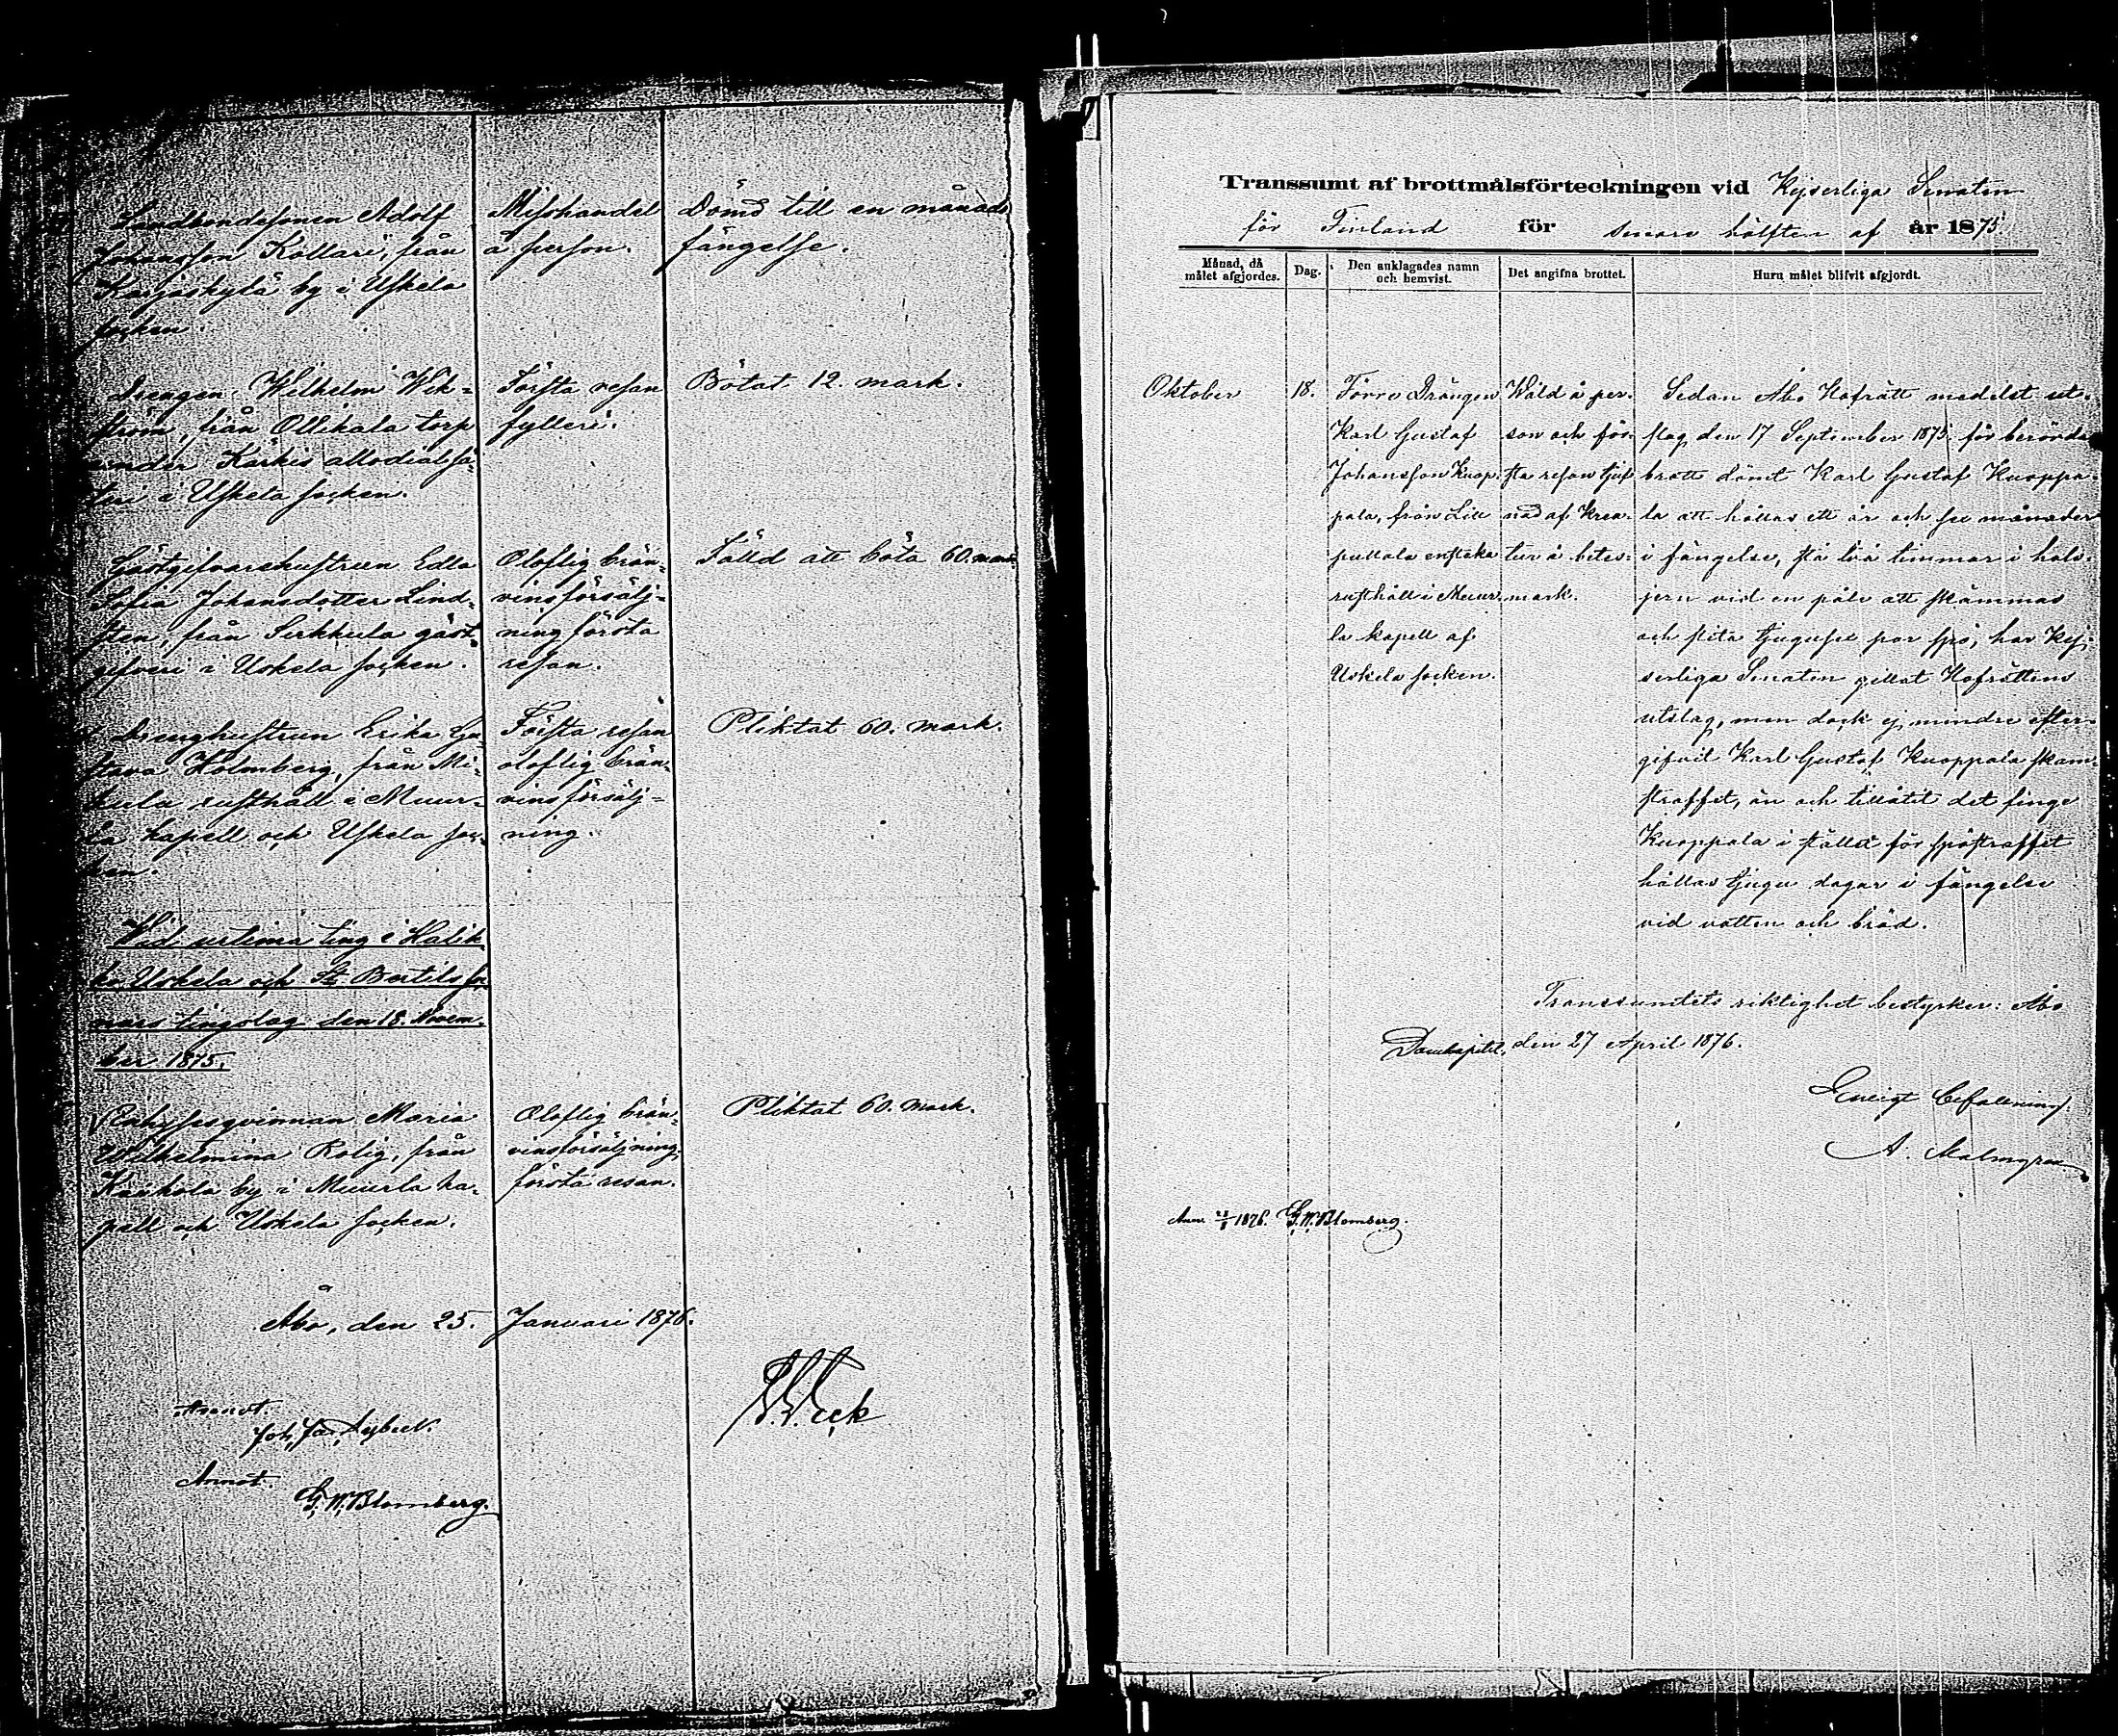 Landbondesonen Adolf
Johansson Kollari, från
Karjaskylä by i Uskela
socken.
Misshandel
å person.
Dömd till en månads
fängelse.
Drengen Wilhelm Wik-
ström, från Ollikala torp
under Kärkis allodialsä-
teri i Uskela socken.
Första resan
fylleri.
Bötat 12. mark.
Gästgifvarehustrun Edla
Sofia Johansdotter Lind-
sten, från Sirkkula gäst-
gifveri i Uskela socken.
Oloflig brän-
vinsförsälj-
ning första
resan.
Fälld att böta 60. mark.
Drenghustrun Erika Gu-
stava Holmberg, från Mi-
kula rusthåll i Muur-
la kapell och Uskela soc-
ken.
Första resan
oloflig brän-
vinsförsälj-
ning.
Pliktat 60. mark.
Vid urtima ting i Halik-
ko, Uskela och St. Bertils soc-
nars tingslag den 18. Novem-
ber 1875.
Enhysesqvinnan Maria
Wilhelmina Rolig, från
Kaukola by i Muurla ka-
pell och Uskela socken.
Oloflig brän-
vinsförsäljning,
första resan.
Pliktat 60. mark.
Åbo, den 25. Januari 1876.
Annot.
Annot.
G. W. Blomberg.
Transsumt af brottmålsförteckningen vid Kejserliga Senaten
för Finland för senare hälften af år 1875.
Månad, då
målet afgjordes.
Dag.
Den anklagades namn
och hemvist.
Det angifna brottet.
Huru målet blifvit afgjordt.
Oktober
18.
Förre Drängen
Karl Gustaf
Johansson Kuop-
pala, från Lill
pullola enstaka
rusthåll i Muur-
la kapell af
Uskela socken.
Wåld å per-
son och för-
sta resan tjuf-
nad af krea-
tur å betes-
mark.
Sedan Åbo Hofrätt medelst ut-
slag den 17 September 1875 för berörda
brott dömt Karl Gustaf Kuoppa-
la att hållas ett år och sex månader
i fängelse, stå två timmar i hals-
jern vid en påle att skämmas
och slita tjugusex par spö, har Kej-
serliga Senaten gillat Hofrättens
utslag, men dock ej mindre efter-
gifvit Karl Gustaf Kuoppala skam-
straffet, än och tillåtit det finge
Kuoppala i stället för spöstraffet
hållas tjugu dagar i fängelse
vid vatten och bröd.
Transsumtets riktighet bestyrker: Åbo
Domkapitel, den 27 April 1876.
Enligt befallning:
A. Malmgren
1876. G. W. Blomberg.